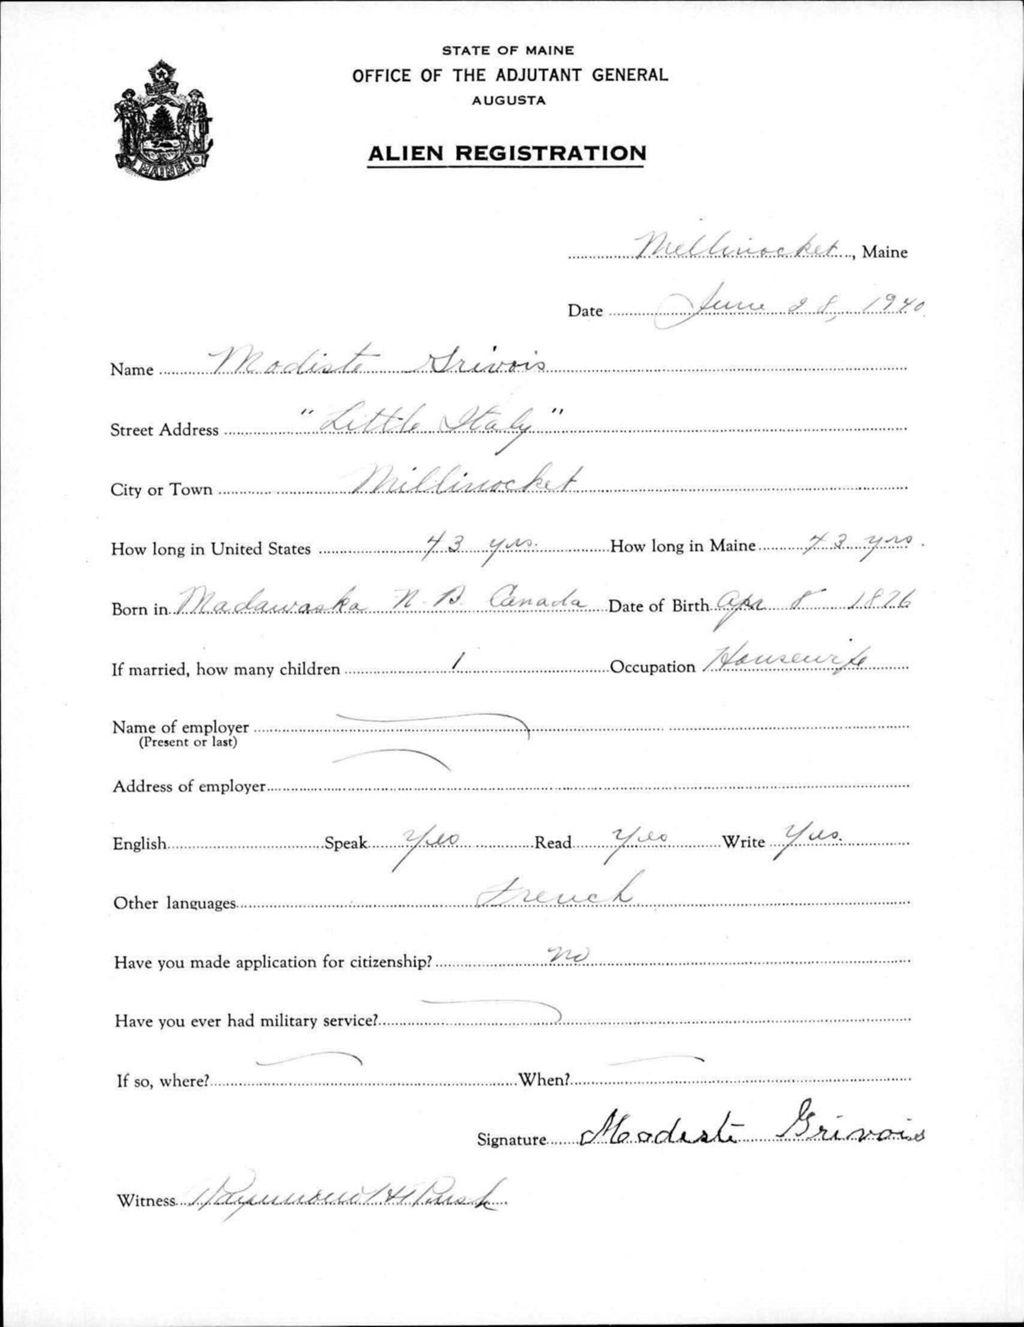 STATE OF MAINE
OFFICE OF THE ADJUTANT GENERAL
AUGUSTA
ALIEN REGISTRATION
MAINE
Millinocket, Maine
Date June 28, 1940
Name Modiste Grivois
Street Address "Little Italy"
City or Town Millinocket
How long in United States 43 yrs. How long in Maine 43 yrs.
Born in Madawaska N.B. Canada Date of Birth Apr 8 1876
If married, how many children 1 Occupation Housewife
Name of employer
(Present or last)
Address of employer
English Speak Yes Read Yes Write Yes.
Other languages French
Have you made application for citizenship? no
Have you ever had military service?
If so, where? When?
Signature Modeste Grivois
Witness Raymond H Rush